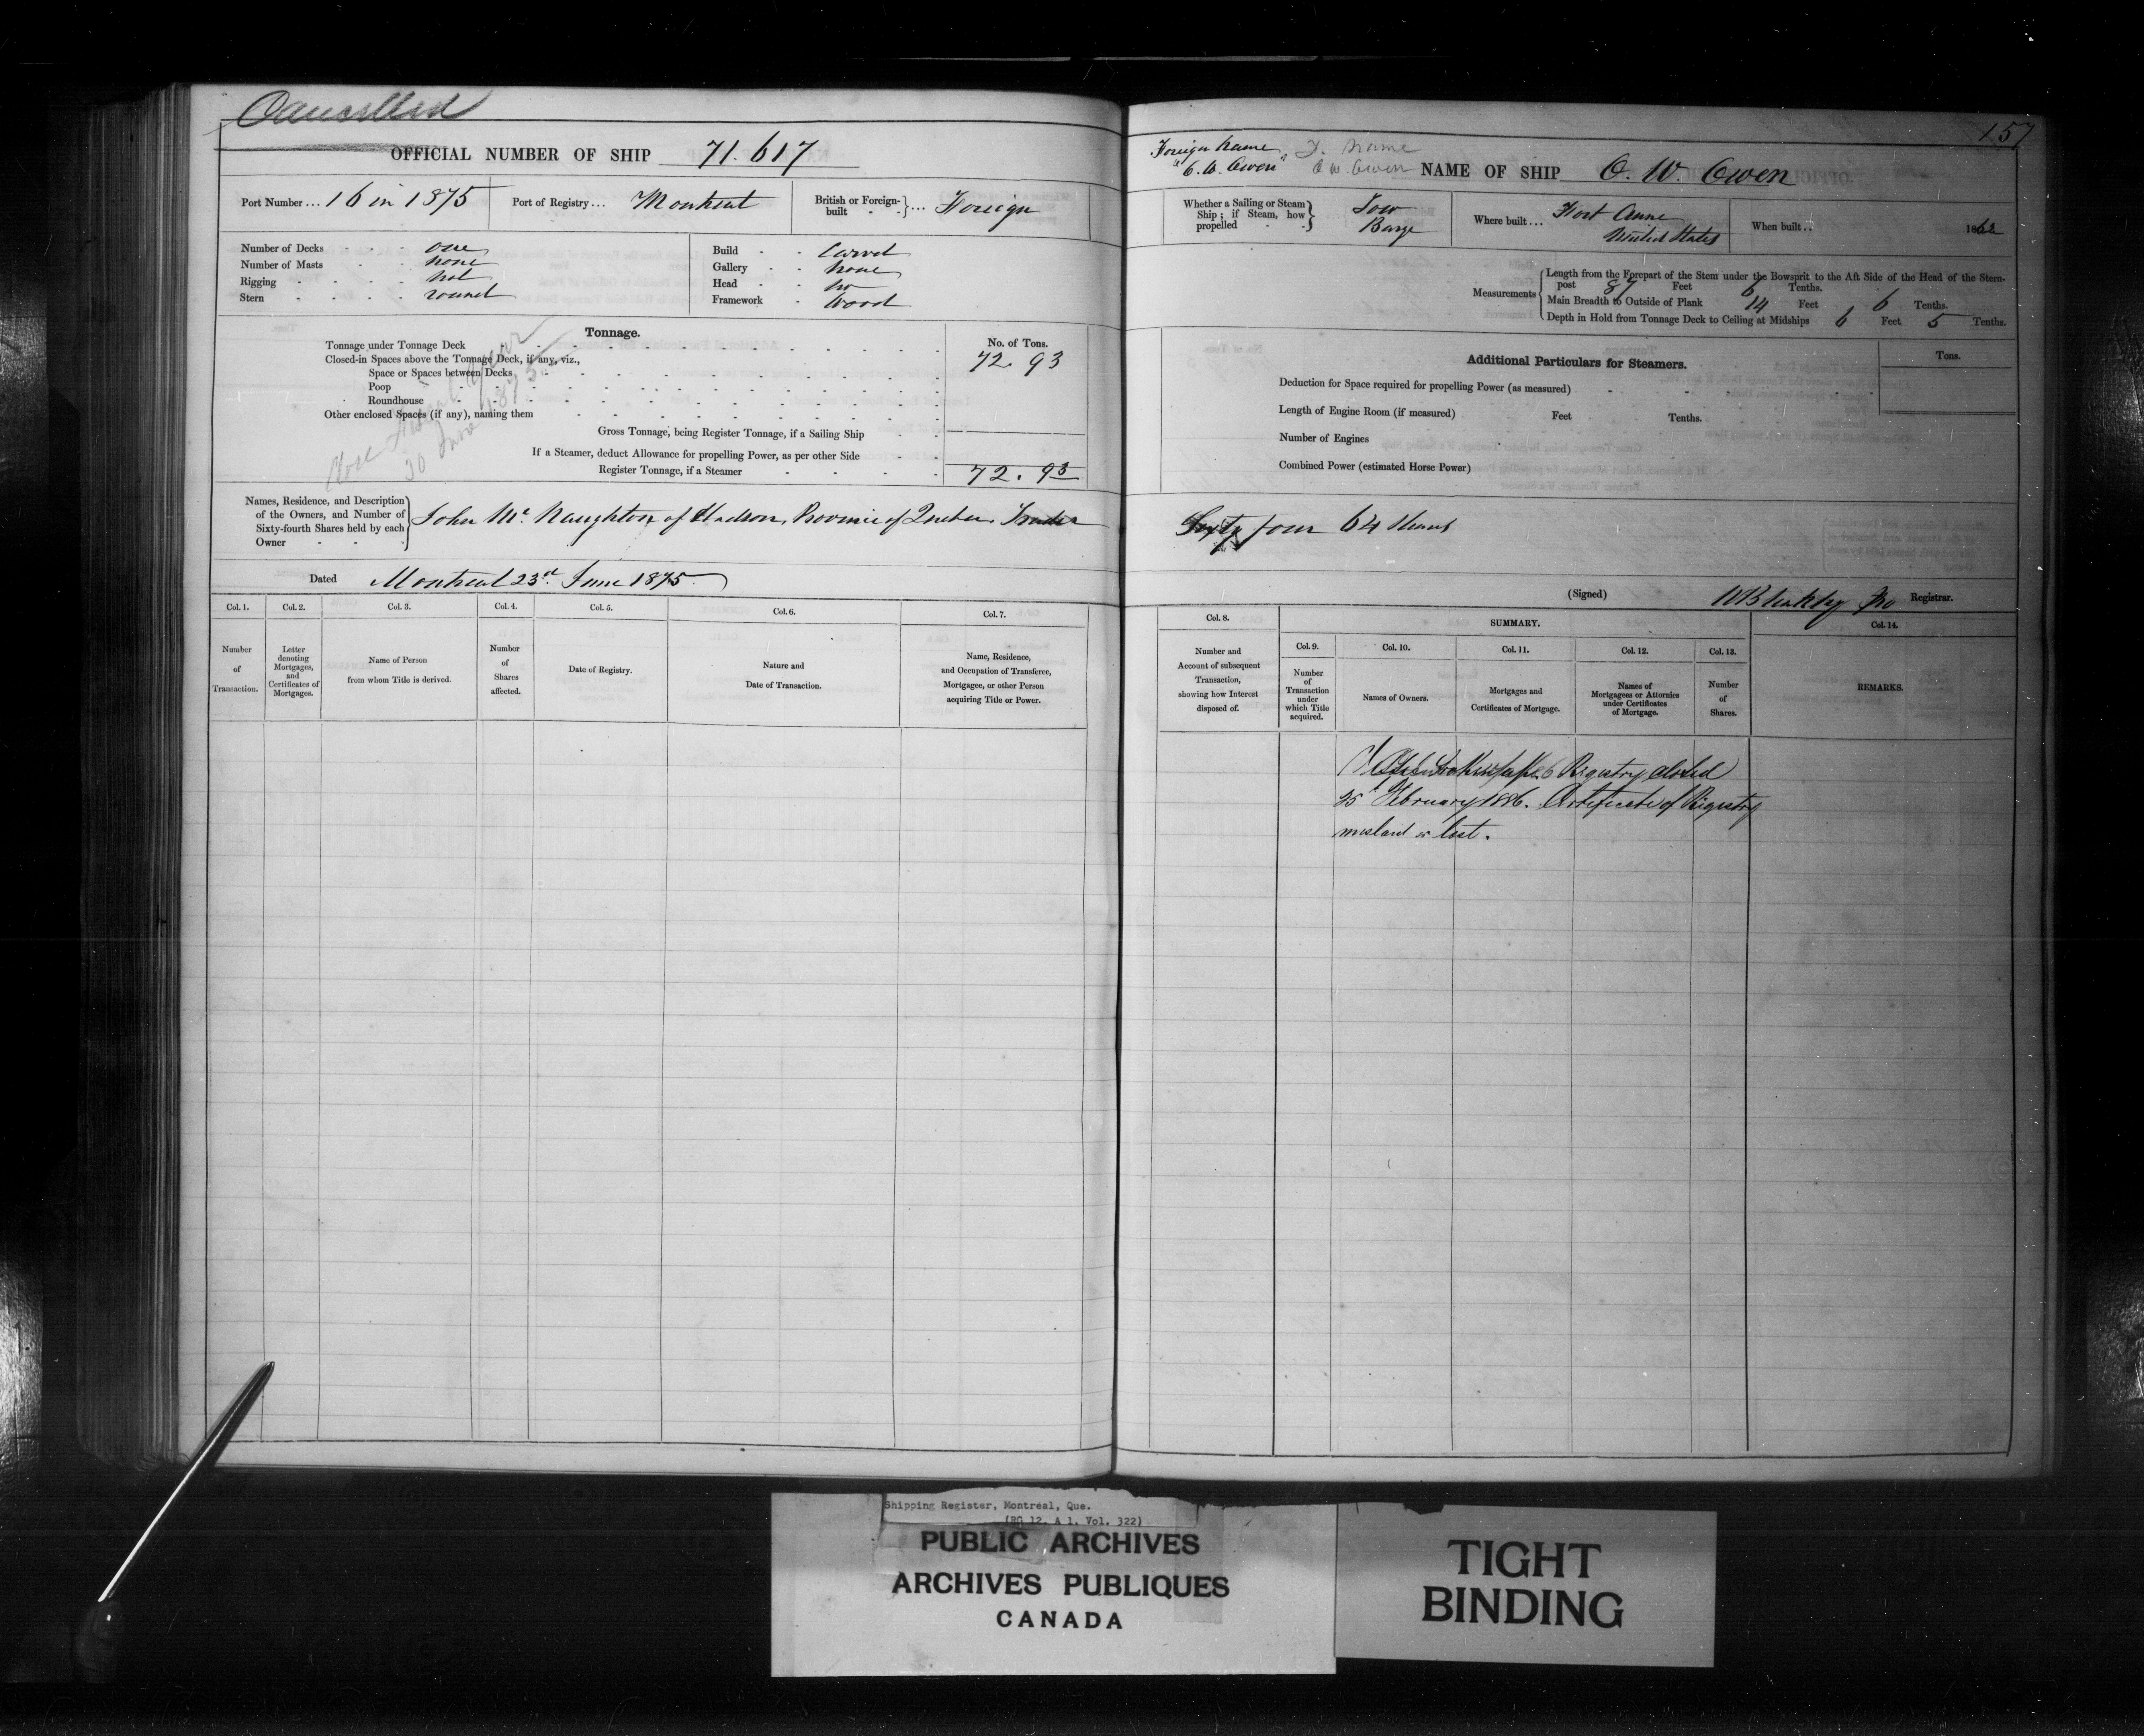 Cancelled
OFFICIAL NUMBER OF SHIP 71.617
Port Number ... 16 in 1875 Port of Registry ... Montreal British or Foreign-built } ... Foreign
Number of Decks one
Number of Masts none
Rigging not
Stern round
Build Carvel
Gallery none
Head no
Framework Wood
Tonnage.
No. of Tons.
Tonnage under Tonnage Deck 72.93
Closed-in Spaces above the Tonnage Deck, if any, viz.,
Space or Spaces between Decks
Poop
Roundhouse
Other enclosed Spaces (if any), naming them
Gross Tonnage, being Register Tonnage, if a Sailing Ship
If a Steamer, deduct Allowance for propelling Power, as per other Side
Register Tonnage, if a Steamer 72.93
year
30 June 1875
Names, Residence, and Description of the Owners, and Number of Sixty-fourth Shares held by each Owner } John Mc Naughton of Hudson, Province of Quebec Trader
Dated Montreal 23rd June 1875.
Col. 1. Col. 2. Col. 3. Col. 4. Col. 5. Col. 6. Col. 7.
Number of Transaction.
Letter denoting Mortgages, and Certificates of Mortgages.
Name of Person from whom Title is derived.
Number of Shares affected.
Date of Registry.
Nature and Date of Transaction.
Name, Residence, and Occupation of Transferee, Mortgagee, or other Person acquiring Title or Power.
157
Foreign Name
"O. W. Owen"
F. Name
O W. Owen
NAME OF SHIP O. W. Owen
Whether a Sailing or Steam Ship; if Steam, how propelled } Tow Barge
Where built ... Fort Anne United States
When built .. 1862
Measurements { Length from the Forepart of the Stem under the Bowsprit to the Aft Side of the Head of the Stern-
post 87 Feet 6 Tenths.
Main Breadth to Outside of Plank 14 Feet 6 Tenths.
Depth in Hold from Tonnage Deck to Ceiling at Midships 6 Feet 5 Tenths.
Additional Particulars for Steamers.
Tons.
Deduction for Space required for propelling Power (as measured)
Length of Engine Room (if measured) Feet Tenths.
Number of Engines
Combined Power (estimated Horse Power)
Sixty four 64 Shares
(Signed) Registrar.
Col. 8. SUMMARY. Col. 14.
Col. 9. Col. 10. Col. 11. Col. 12. Col. 13.
Number and Account of subsequent Transaction, showing how Interest disposed of.
Number of Transaction under which Title acquired.
Names of Owners.
Mortgages and Certificates of Mortgage.
Names of Mortgagees or Attornies under Certificates of Mortgage.
Number of Shares.
REMARKS.
Registry closed
25th February 1886. Certificate of Registry
mislaid or lost.
Shipping Register, Montreal, Que.
(RG 12, A 1, Vol. 322)
PUBLIC ARCHIVES
ARCHIVES PUBLIQUES
CANADA
TIGHT
BINDING